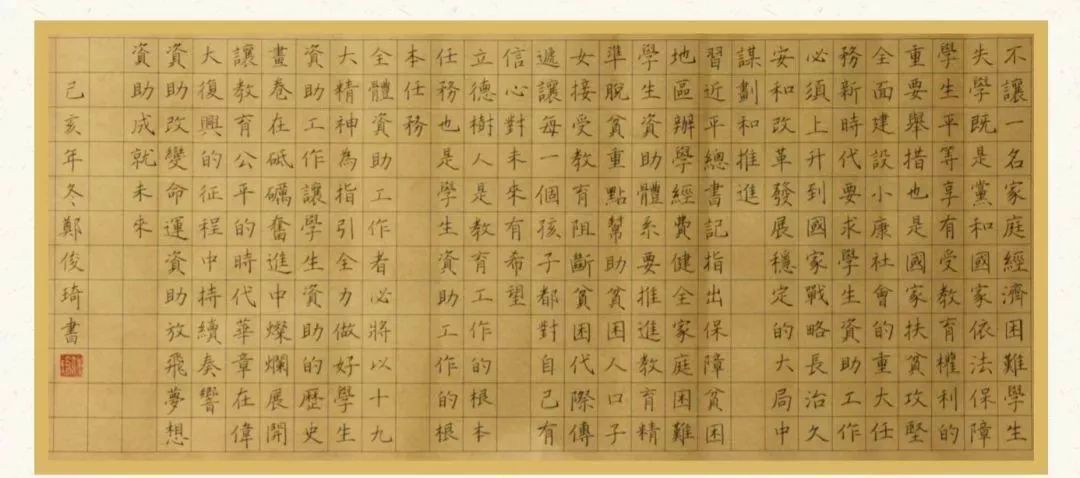 不讓一名家庭經濟困難學生
失學既是黨和國家依法保障
學生平等享有受教育權利的
重要舉措也是國家扶貧攻堅
全面建設小康社會的重大任
務新時代要求學生資助工作
必須上升到國家戰略長治久
安和改革發展穩定的大局中
謀劃和推進
習近平總書記指出保障貧困
地區辦學經費健全家庭困難
學生資助體系要推進教育精
準脫貧重點幫助貧困人口子
女接受教育阻斷貧困代際傳
遞讓每一個孩子都對自己有
信心對未來有希望
立德樹人是教育工作的根本
任務也是學生資助工作的根
本任務
全體資助工作者必將以十九
大精神為指引全力做好學生
資助工作讓學生資助的歷史
畫卷在砥礪奮進中燦爛展開
讓教育公平的時代華章在偉
大復興的征程中持續奏響
資助改變命運資助放飛夢想
資助成就未來
己亥年冬鄭俊琦書